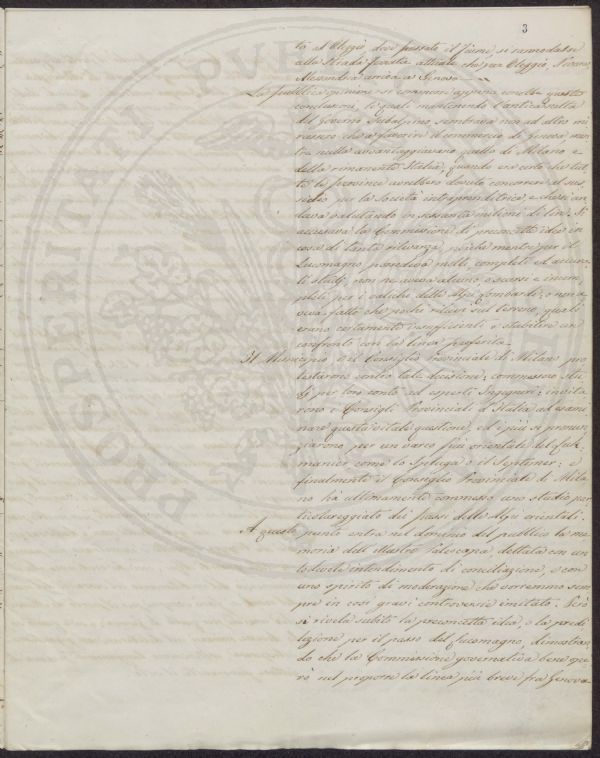 3
to ad Oleggio, dove passato il Ticino, si rannodasse
alla strada ferrata attuale che per Oleggio, Novara,
Alessandria arriva a Genova.
La pubblica opinione si commosse appena conobbe queste
conclusioni, le quali mantenendo l'antica
del Governo Subalpino sembrava non ad altro mi
rassero che a favorire il commercio di Genova men
tre nulla avvantaggiavano quello di Milano e
della rimanente Italia, quando era certo che tut
te le provincie avrebbero dovuto concorrere al sus
sidio per la Società intraprenditrice e che si an
dava valutando in sessanta milioni di lire. Si
accusava la Commissione di preconcetta idea in
cosa di tanta rilevanza, poichè mentre per il
Lucomagno possedeva molti, completi ed accura
ti studj, non ne aveva alcuno, o scarsi e incom
pleti per i valichi delle Alpi Lombarde; e non a
veva fatto che pochi rilievi sul terreno, quali
erano certamente insufficienti a stabilire un
confronto con la linea preferita.
Il Municipio e il Consiglio Provinciale di Milano pro
testarono contro tale decisione; commisero stu
dj per loro conto ad esperti Ingegneri; invita
rono i Consigli Provinciali d'Italia ad esami
nare questa vitale questione, ed i più si pronun
ziarono per un varco più orientale del Luk-
manier come lo Spluga o il Septimer; e
finalmente il Consiglio Provinciale di Mila
no ha ultimamente commesso uno studio par
ticolareggiato dei passi delle Alpi orientali.
A questo punto entra nel dominio del pubblico la me
moria dell'illustre Paleocapa dettata con un
lodevole intendimento di conciliazione, e con
uno spirito di moderazione che vorremmo sem
pre in così gravi controversie imitato. Però
si rivela subito la preconcetta idea, e la predi
lezione per il passo del Lucomagno, dimostran
do che la Commissione governativa bene ope
rò nel proporre la linea più breve fra Genova